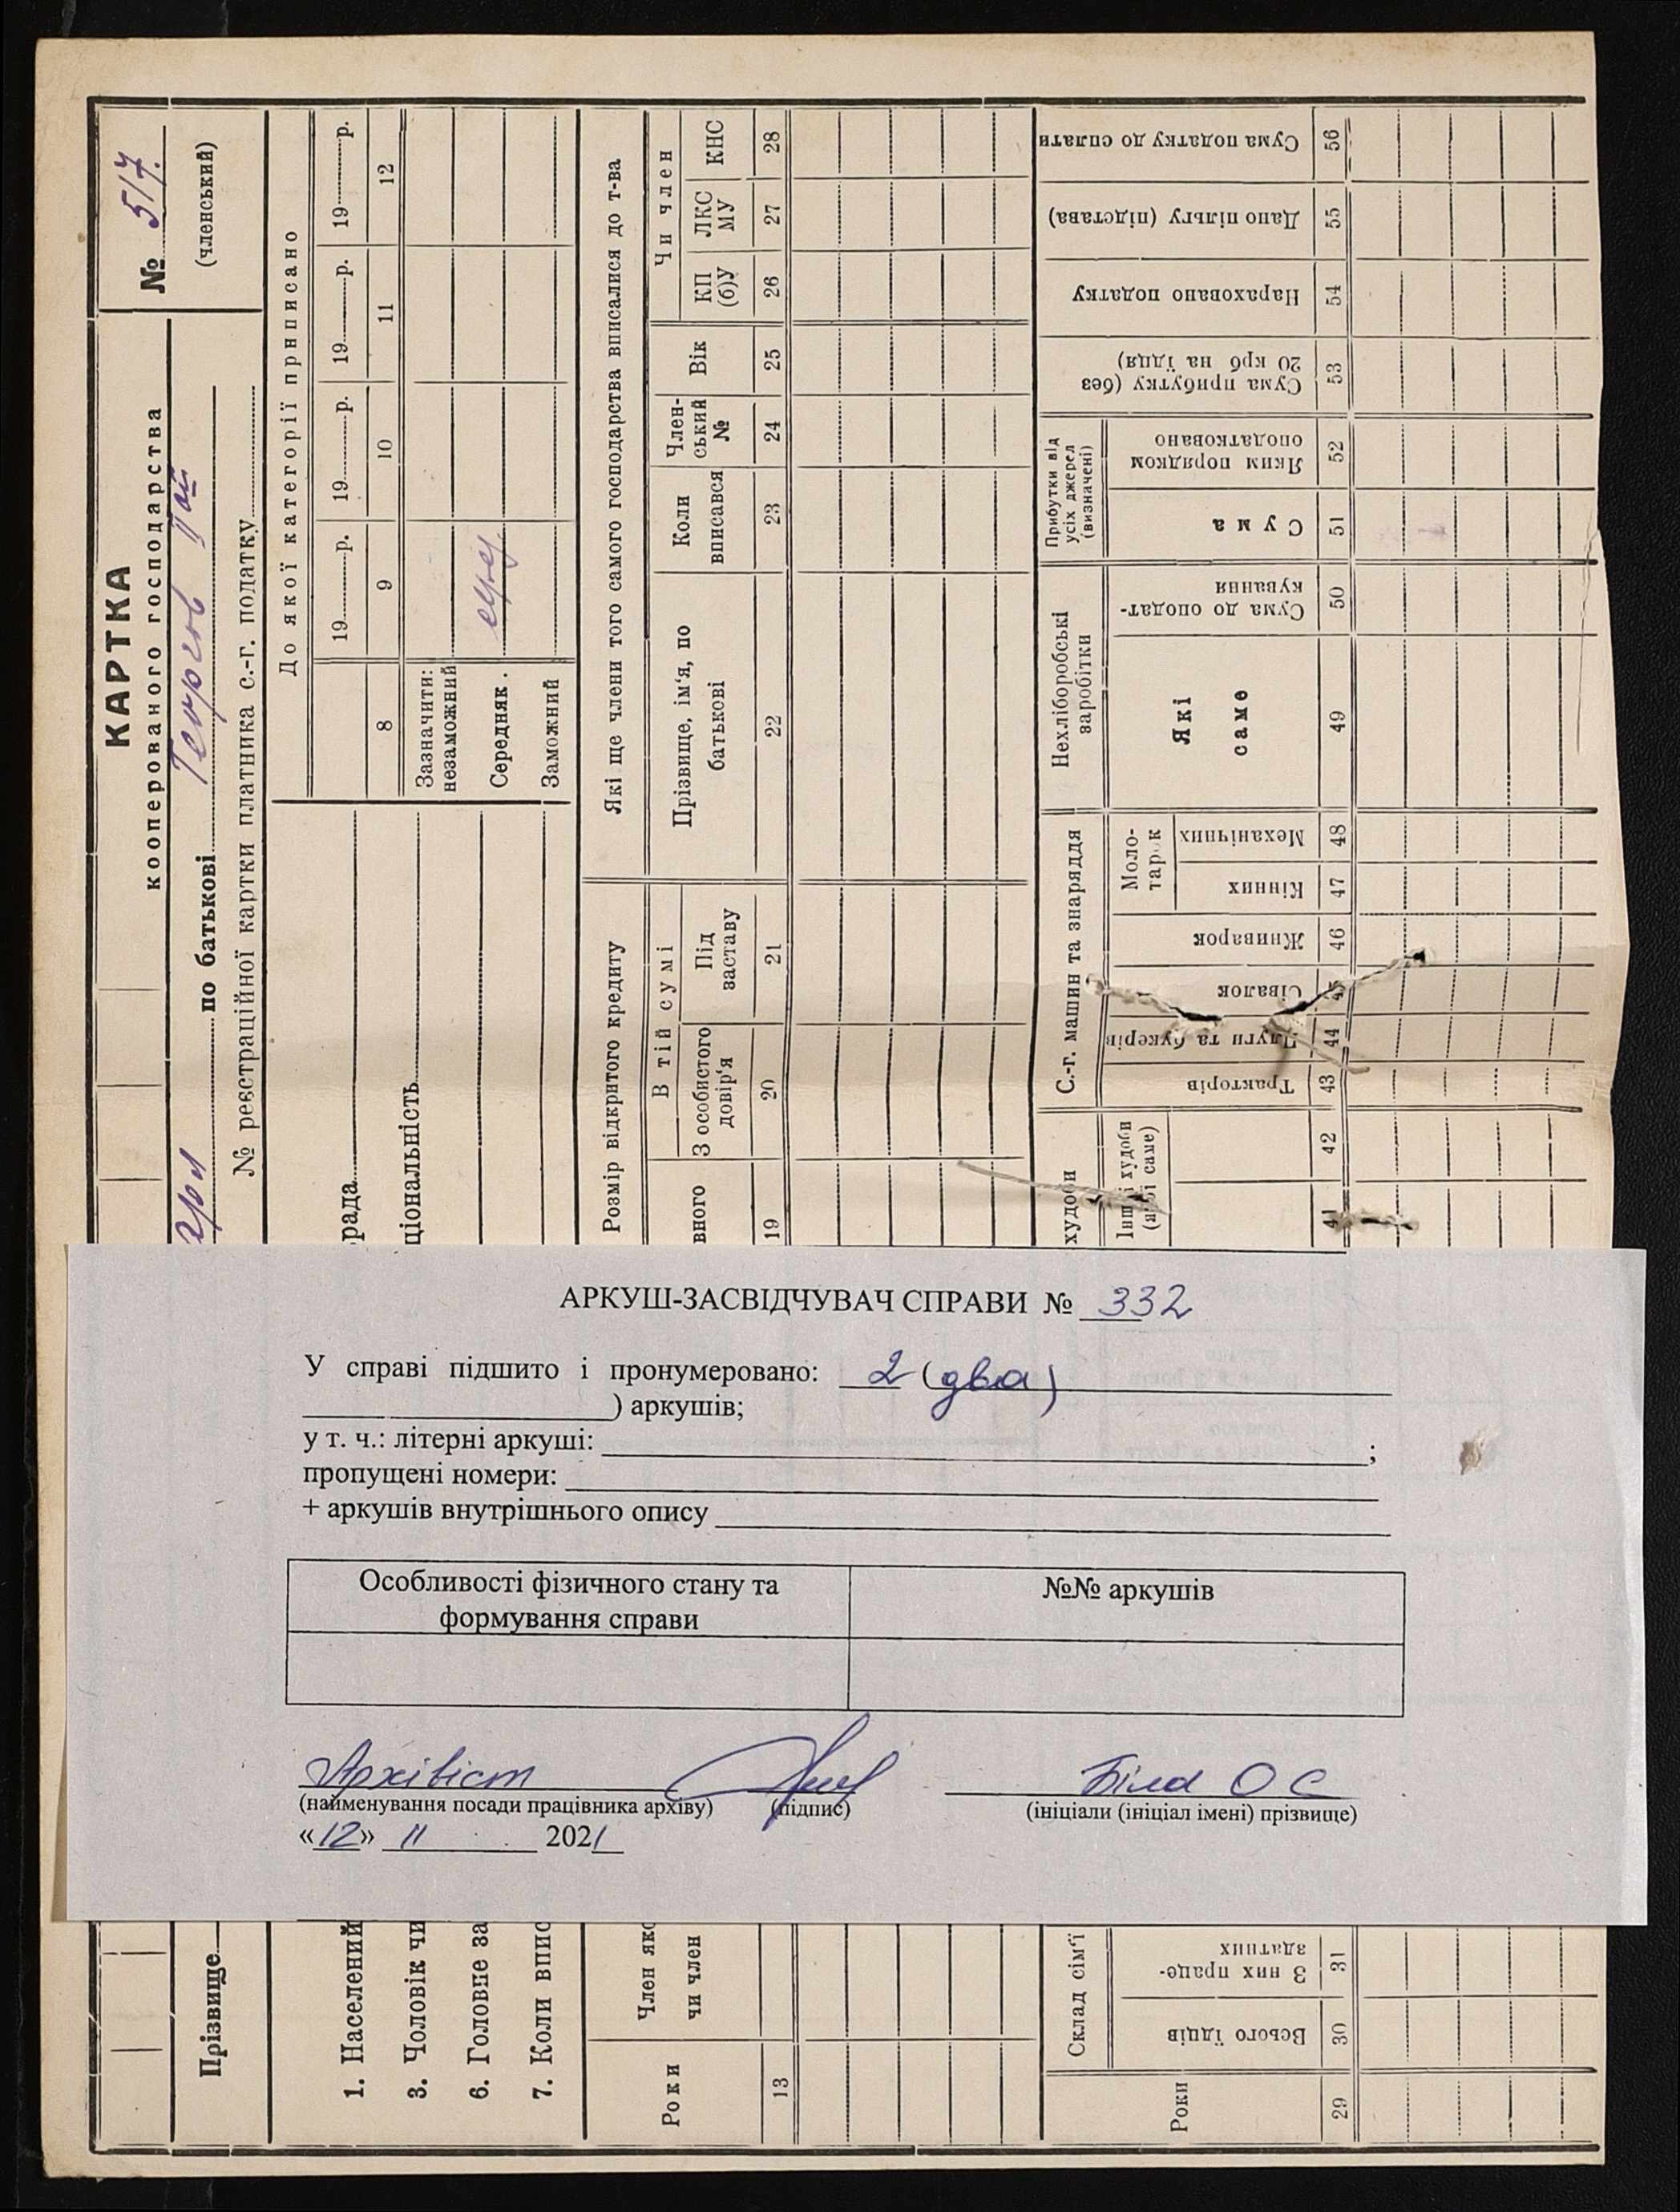 КАРТКА
кооперованого господарства
№ 517.
(членський)
по батькові
№ реєстраційної картки платника с.-г. податку
До якої категорії приписано
19 р.
19 р.
19 р.
19 р.
8
9
10
11
12
Зазначити:
незаможний
Середняк.
Заможний
рада
ціональність
Розмір відкритого кредиту
В тій сумі
вного
З особистого
довір'я
Під
заставу
19
20
21
Які ще члени того самого господарства вписалися до т-ва
Прізвище, ім'я, по
батькові
Коли
вписався
Член-
ський
№
Вік
Чи член
КП
(б)У
ЛКС
МУ
КНС
22
23
24
25
26
27
28
худоби
Інші худоби
(які саме)
41
42
С.-г. машин та знаряддя
Тракторів
Плуги та букерів
Сівалок
Жниварок
Моло-
тарок
Кінних
Механічних
43
44
45
46
47
48
Нехліборобські
заробітки
Які
саме
Сума до оподат-
кування
49
50
Прибутки від
усіх джерел
(визначені)
Сума
Яким порядком
оподатковано
51
52
Сума прибутку (без
20 крб на їдця)
Нараховано податку
Дано пільгу (підстава)
Сума податку до сплати
53
54
55
56
АРКУШ-ЗАСВІДЧУВАЧ СПРАВИ № 332
У справі підшито і пронумеровано: 2 (два)
) аркушів;
у т. ч.: літерні аркуші: ;
пропущені номери:
+ аркушів внутрішнього опису
Особливості фізичного стану та
формування справи
№№ аркушів
Архівіст
Біла О С
(найменування посади працівника архіву) (підпис) (ініціали (ініціал імені) прізвище)
«12» 11 2021
Прізвище
1. Населений
3. Чоловік чи
6. Головне за
7. Коли впис
Роки
Член яко
чи член
13
Склад сім'ї
Роки
Всього їдців
З них праце-
здатних
29
30
31